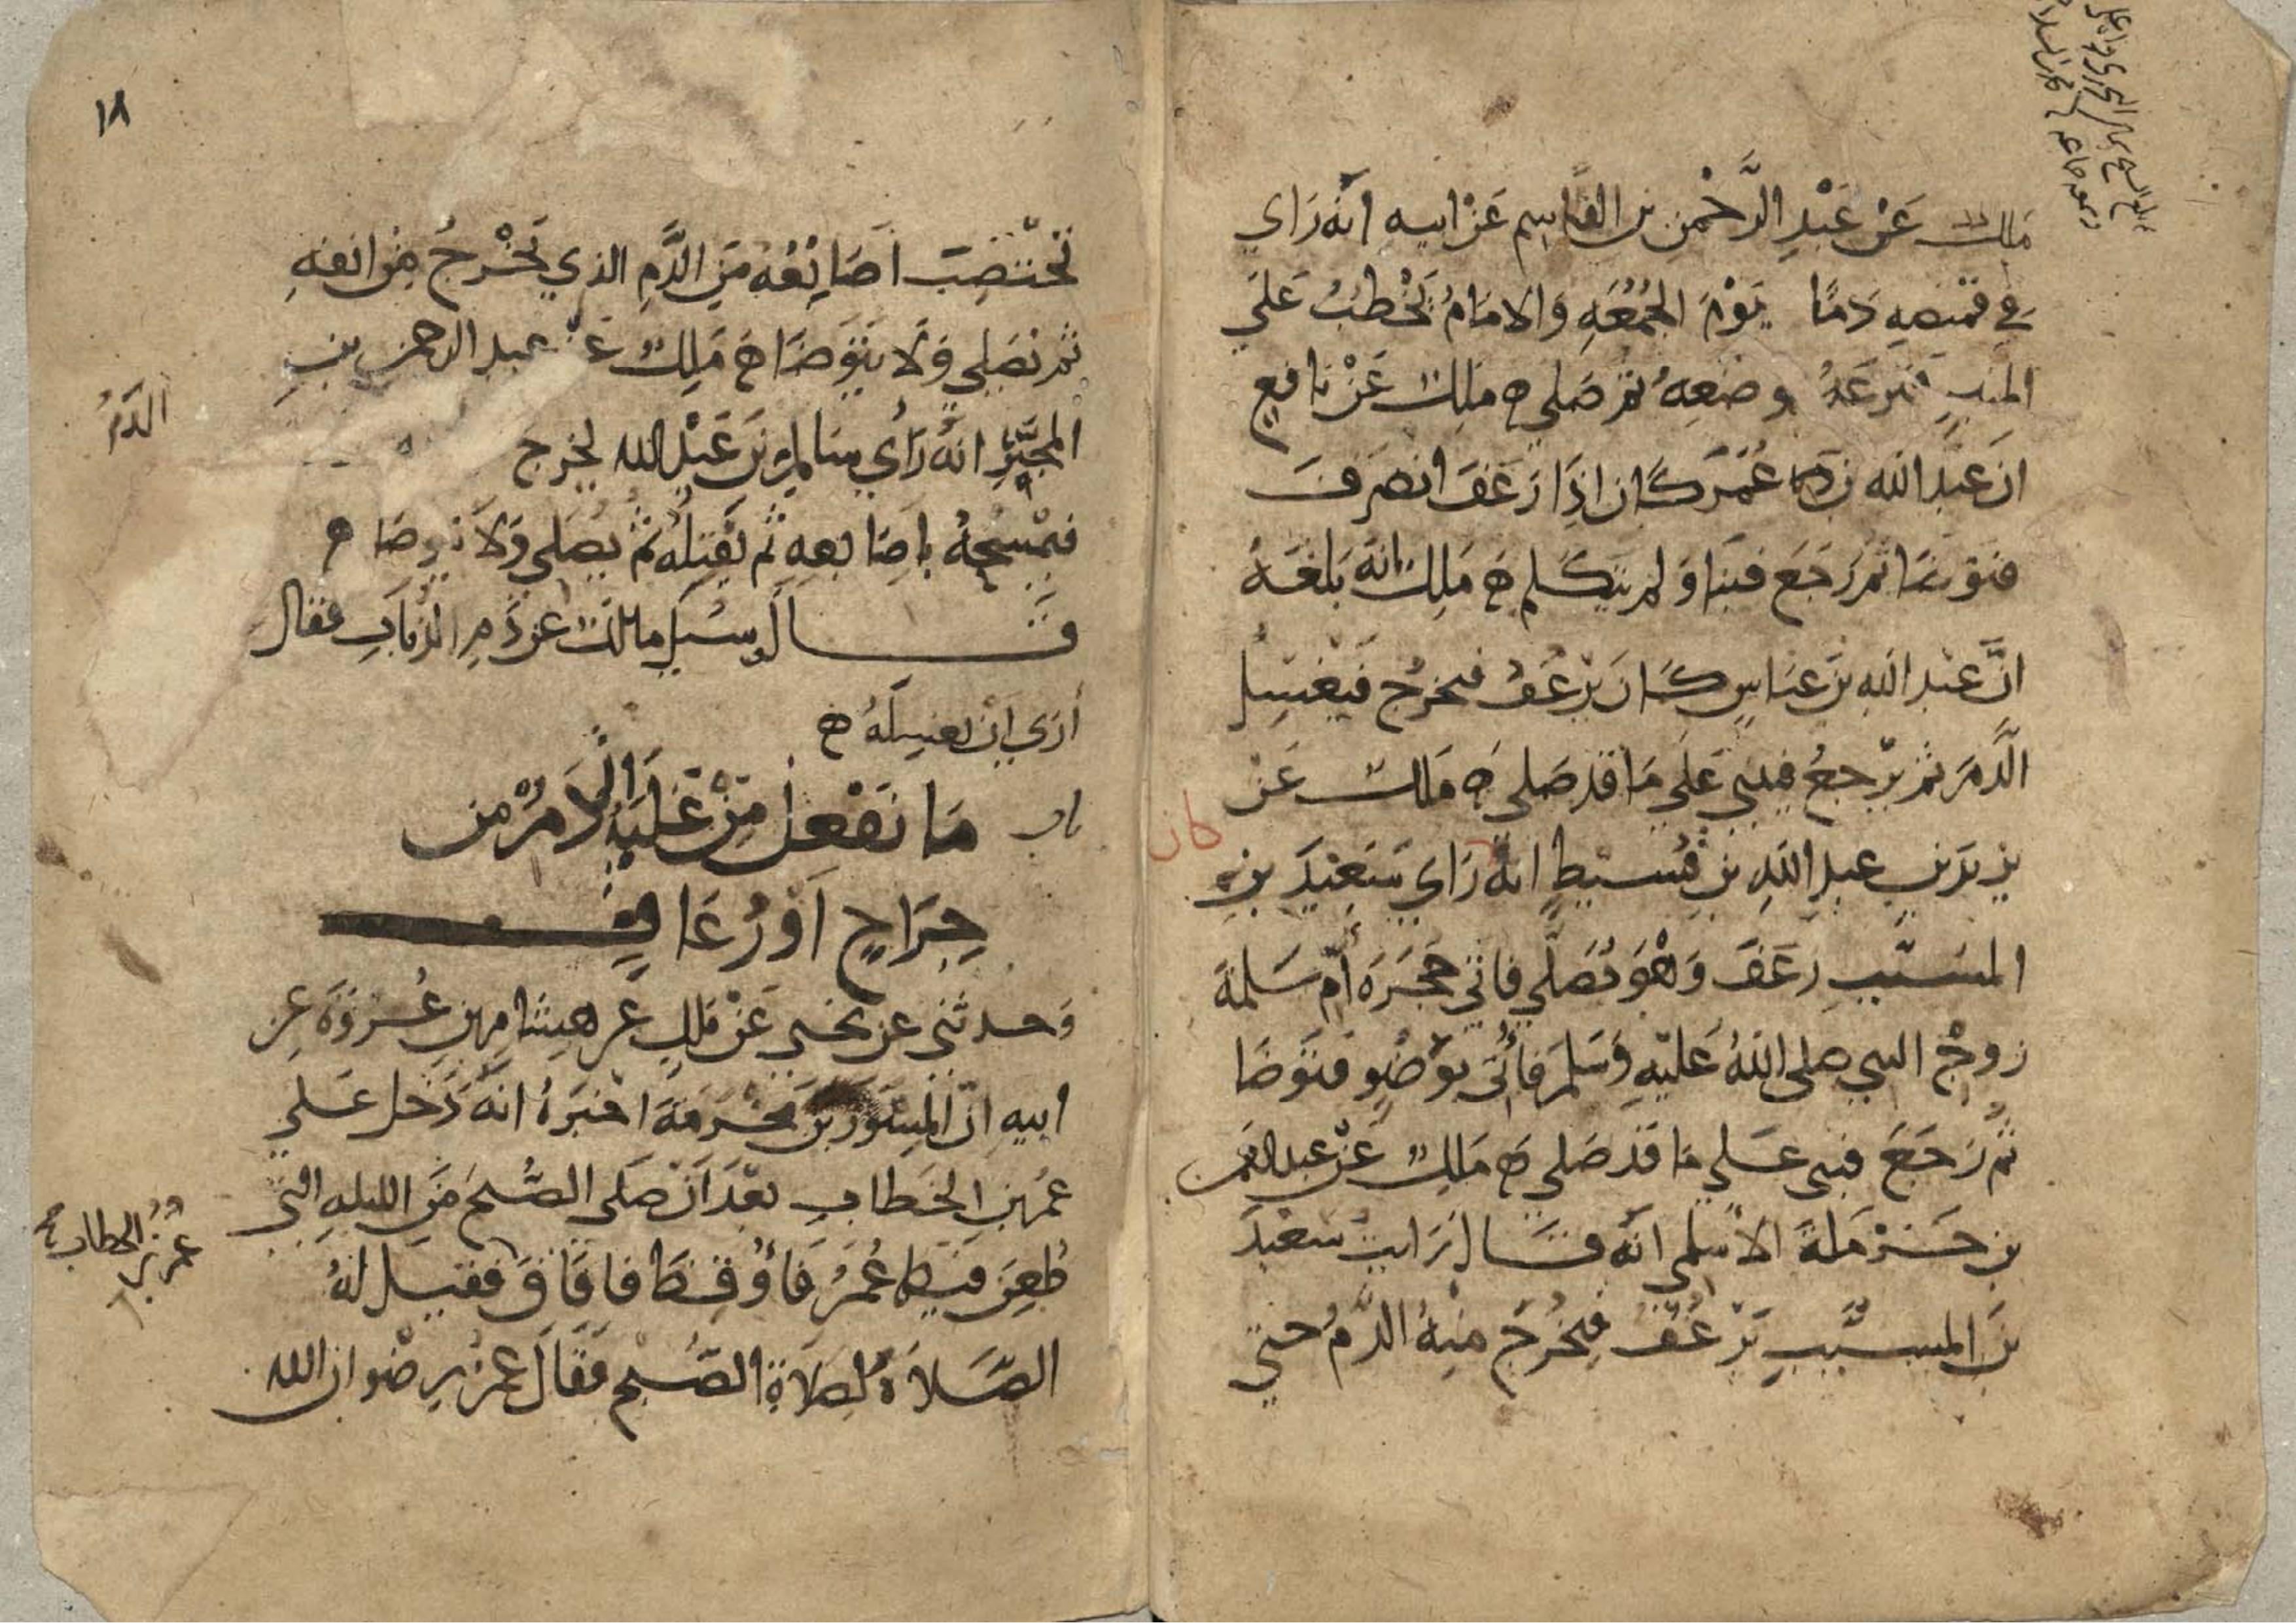 ملك عَنْ عَبْدِ الرَّحْمنِ بن القاسِم عَنْ ابيه انّه رَاي
في قميصِهِ دَمًا يَوْمَ الجُمُعَهِ وَالامَامُ يَخْطبُ عَلَي
المِنبرِ فنزعَهُ وضعهُ ثم صَلي ملك عَنْ نافعٍ
انَ عَبْدَ الله بن عُمَرَ كَان اذَا رَعَفَ انصَرَفَ
فتوضّا ثم رَجَعَ فبَنا وَلم يتكَلم مَلِك انّه بَلغَهُ
انَّ عَبْدَ اللهِ بنَ عبَاسٍ كَانَ يَرْعُفُ فيخرُج فيَغْسِلُ
الدَّمَ ثم يَرْجعُ فيبني عَلَي مَا قد صَلي مَلك عَنْ
يزيدَ بنِ عبدِ اللهِ بنِ قُسيطٍ انّهُ رَاي سَعِيْدَ بنِ
المسَيّبِ رَعَفَ وَهْوَ يُصَلّي فاتي حُجرَةَ أمّ سَلمةَ
زوجْ النبي صلى اللهُ عَليْهِ وَسَلمَ فأُتيَ بوَضُوٍ فتوَضا
ثم رَجَعَ فبني عَلي مَا قد صَلي مَالِك عَنْ عبد الرحمن
بن حَرْمَلةَ الاسْلمي انّه قَال رَايت سَعْيدَ
بنَ المسيَّبِ يَرْعُفُ فيَخْرُجَ مِنهُ الدَّمُ حتي
كان
١٨
تخْتَضِبَ اَصَابِعُهُ مِنَ الدَّمِ الذي يَخْرجُ مِن انفِهِ
ثم يُصَلي وَلَا يتَوَضَا مَلِك عَنْ عبد الرحمن بنِ
المجَبَّر انّهُ رَأي سَالمَ بنَ عَبْدِ الله يخرج
الدَّمُ
فيمْسَحُهُ بأصَابعِهِ ثم يَفتِلُه ثمُّ يصَلي وَلَا يتوضا
قَال وسُيِل مالك عن دَمِ الذبابِ فقال
أرَي اَنْ يغسِلَهُ
باب مَا يَفْعل مَنْ غَلَبَهُ الدَّمُ مِن
جِرَاحٍ اَوْ رُعَافٍ
وَحدثني عن يحيي عَنْ مَلكٍ عَن هِشَامِ بنِ عُرْوَةَ عن
ابيه انّ المِسْوَرَ بنَ مَخْرَمَةَ اخْبَرَهُ انهُ دَخل عَلي
عُمَر بن الخَطاب بَعْدَ اَنْ صَلي الصُّبحَ مِنَ الليلهِ التي
طُعِنَ فيها عُمَرُ فأُوقِظَا فافَاقَ فقيل لهُ
عمر بن الخطاب
الصَّلاَةُ لِصَلاَةِ الصُّبح فقالَ عُمَرُ رِضْوان الله